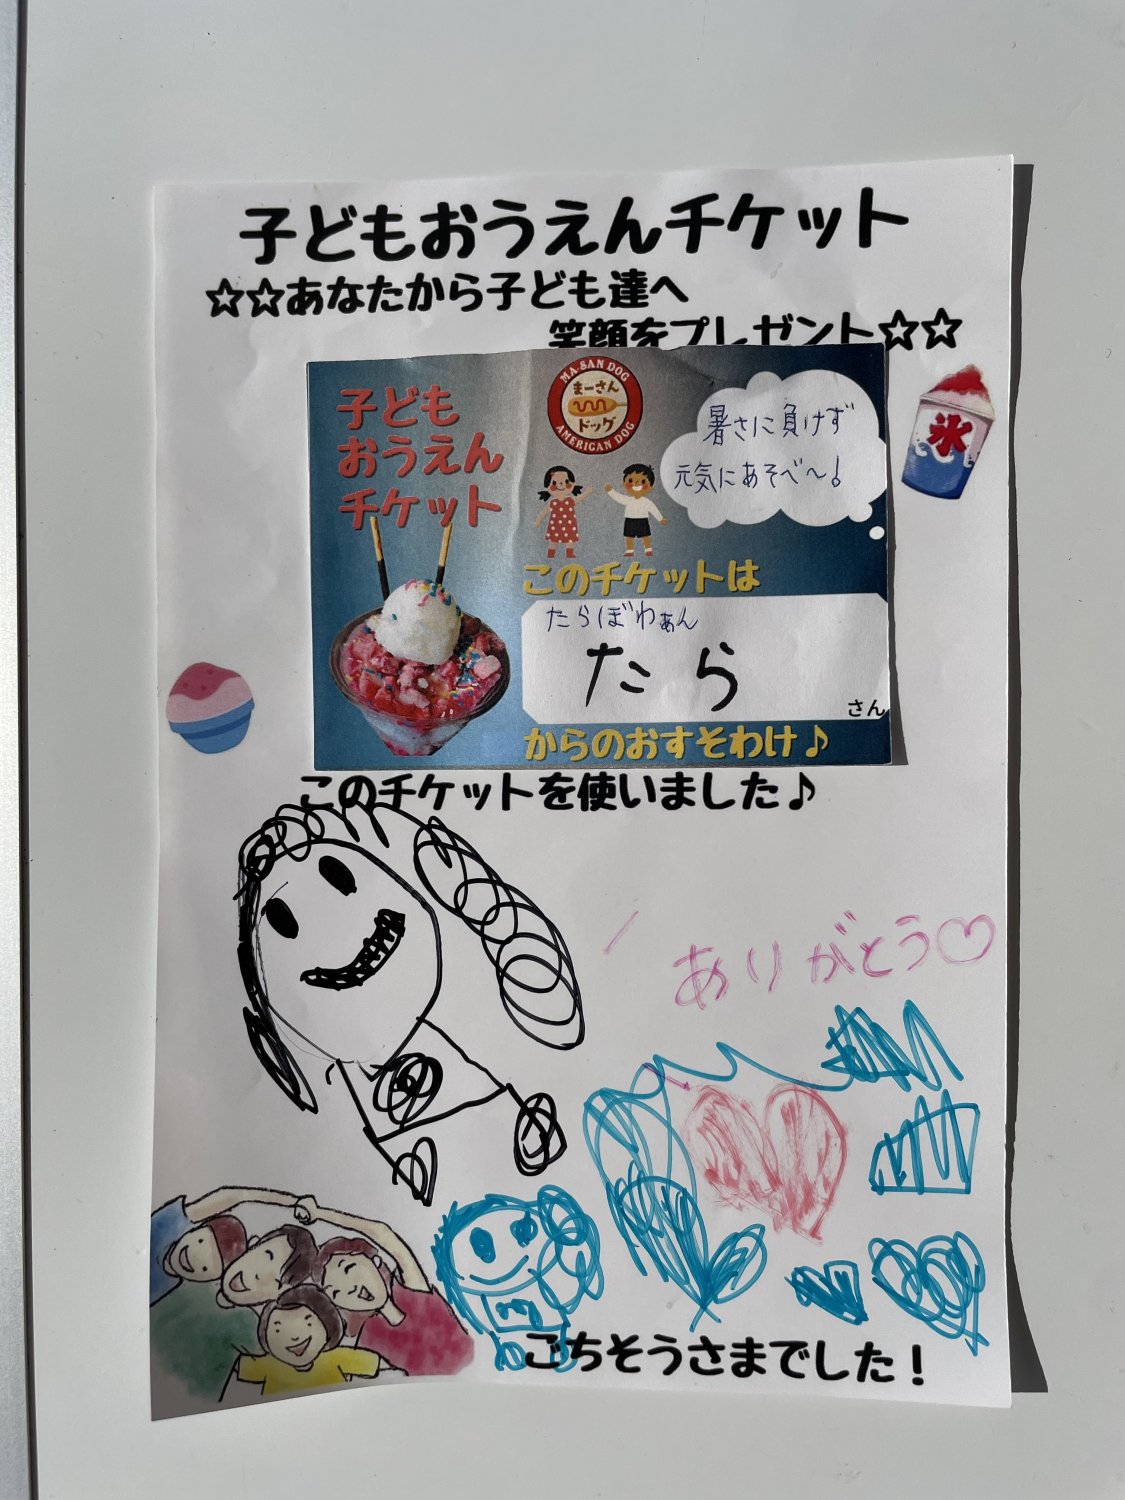 子どもおうえんチケット
☆☆あなたから子ども達へ
笑顔をプレゼント☆☆
子ども
おうえん
チケット
MA-SAN DOG
まーさん
ドッグ
AMERICAN DOG
暑さに負けず
元気にあそべ〜!
氷
このチケットは
たらぼわぁん
たら
さん
からのおすそわけ♪
このチケットを使いました♪
ありがとう♡
ごちそうさまでした!